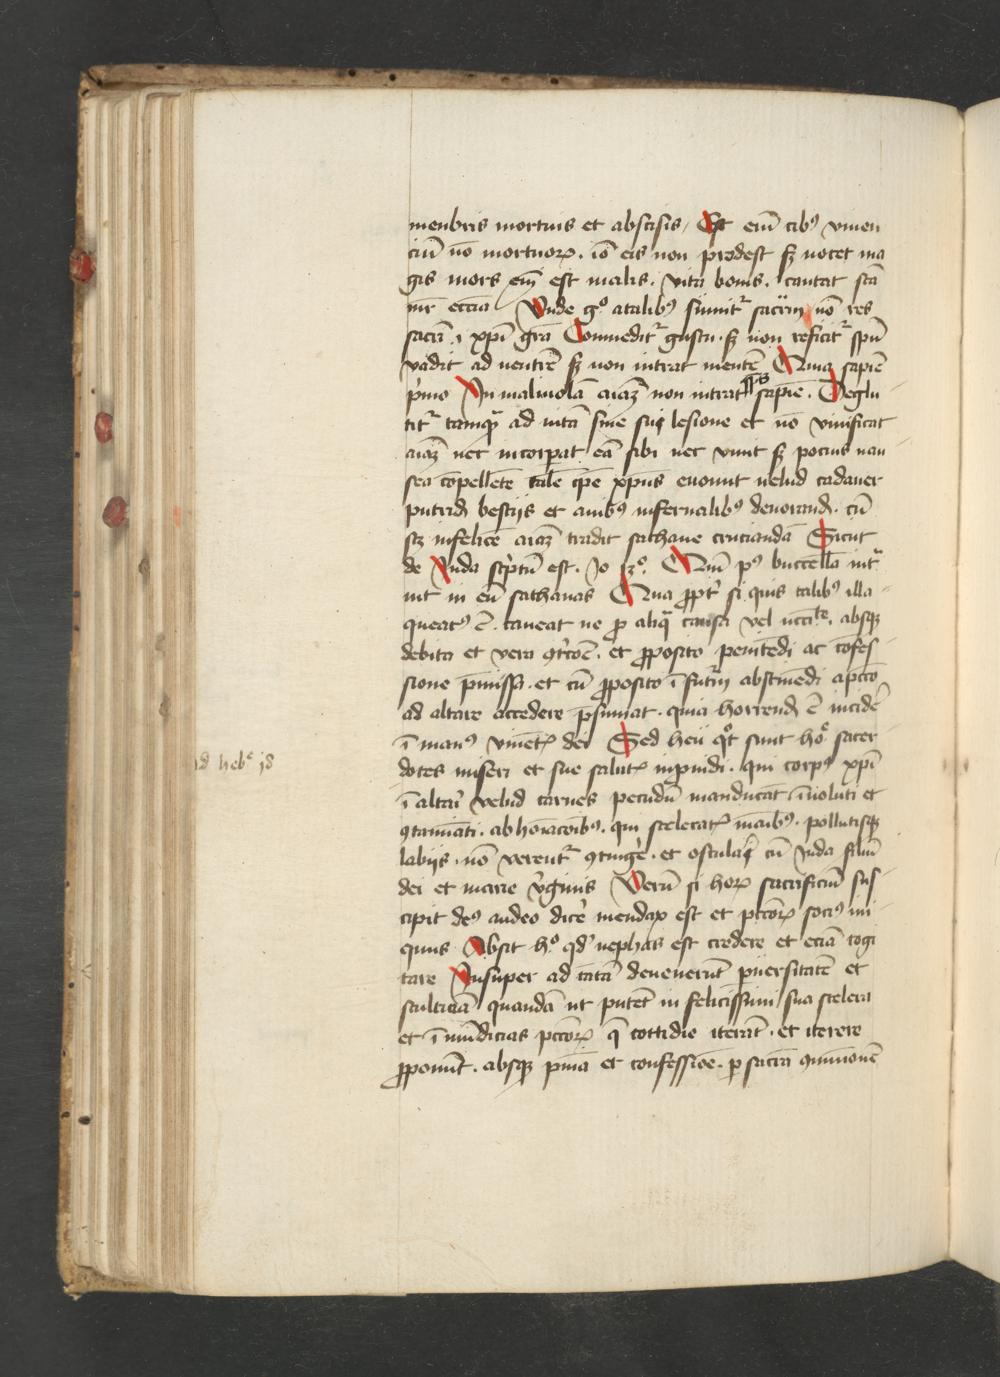 menbris mortuis et abscisis / Est eni̅ cibꝰ viuen
ciu̅ no̅ mortuoꝝ . io̅ eis non prodest sꝫ nocet ma
gis mors em̅ est malis . vita bonis . cantat sc̅a
mr̅ eccl̅ia Vnde gͦ a talibꝰ sumit᷑ sacr̅m no̅ res
sacri̅ .i. xp̅i gr̅a Conmedit᷑ gustu . sꝫ non reficit᷑ sp̅u
vadit ad ventre̅ sꝫ non intrat mente̅ Quia sapie̅
p͛mo In maliuola̅ aia̅ꝫ non intrat sp̅s sapie̅ . Deglu
tit᷑ tamqᷓ ad vita̅ sine sui lesione et no̅ viuificat
aia̅ꝫ nec incorp̲at ea̅ sibi nec viuit sꝫ pocius nau
sea co̅pelle̅te tale̅ xpu̅s euomit velud cadauer
putrid̅ bestijs et auibꝰ infernalibꝰ deuorand̅ . cu̅
scꝫ infelice̅ aia̅ꝫ tradit sathane crucianda̅ Sicut
de Iuda scͥptu̅ est . Jo 13ͦ . Cum pꝰ buccella̅ intᷓ
uit in eu̅ sathanas Qua ꝓpt̛ si quis talibꝰ illa
queatꝰ e̅ . caueat ne ꝓ aliqᷓ causa vel nc̅cͭᵉ . absqꝫ
debita et vera ꝯtͥco̅e̅ . et ꝓposito penite̅di ac co̅fes
sione p̅missa . et cu̅ ꝓposito i̅ futu̅r̅ abstine̅di a pc̅co
ad altare accedere p̅sumat . quia horrend̅ e̅ incide̅
i̅ manꝰ viue̅t͛ dei Sed heu qͦt sunt hoͤ sacer
ad hebᵉ 10
dotes miseri et sue salut͛ inp̱uidi . qui corpꝰ xp̅i
i̅ altari velud carnes pecudu̅ manduca̅t i̅uoluti et
ꝯta̅iati . abho̅i̅aco̅ibꝰ . qui scelerat͛ ma̅ibꝰ . pollutisqꝫ
labijs . no̅ verent᷑ ꝯtinge̛ . et oscula̛i cu̅ Iuda filiu̅
dei et marie v̛ginis Veru̅ si hoꝝ sacrificiu̅ sus
cipit deꝰ audeo dice̛ mendax est et pcc̅oꝝ sociꝰ ini
quus Absit hͦ qd̛ nephas est credere et ecia̅ cogi
tare Insuper ad ta̅ta̅ deuenerunt p̱uersitate̅ et
stulticia̅ quanda̅ ut pute̅t infelicissimi sua scelera
et i̅mu̅dicias pcc̅oꝝ q̅ cottidie itera̅t . et iterere
ꝓponu̅t . absqꝫ pni̅a et confessio̅e . p̱ sacra̅ ꝯmunione̅